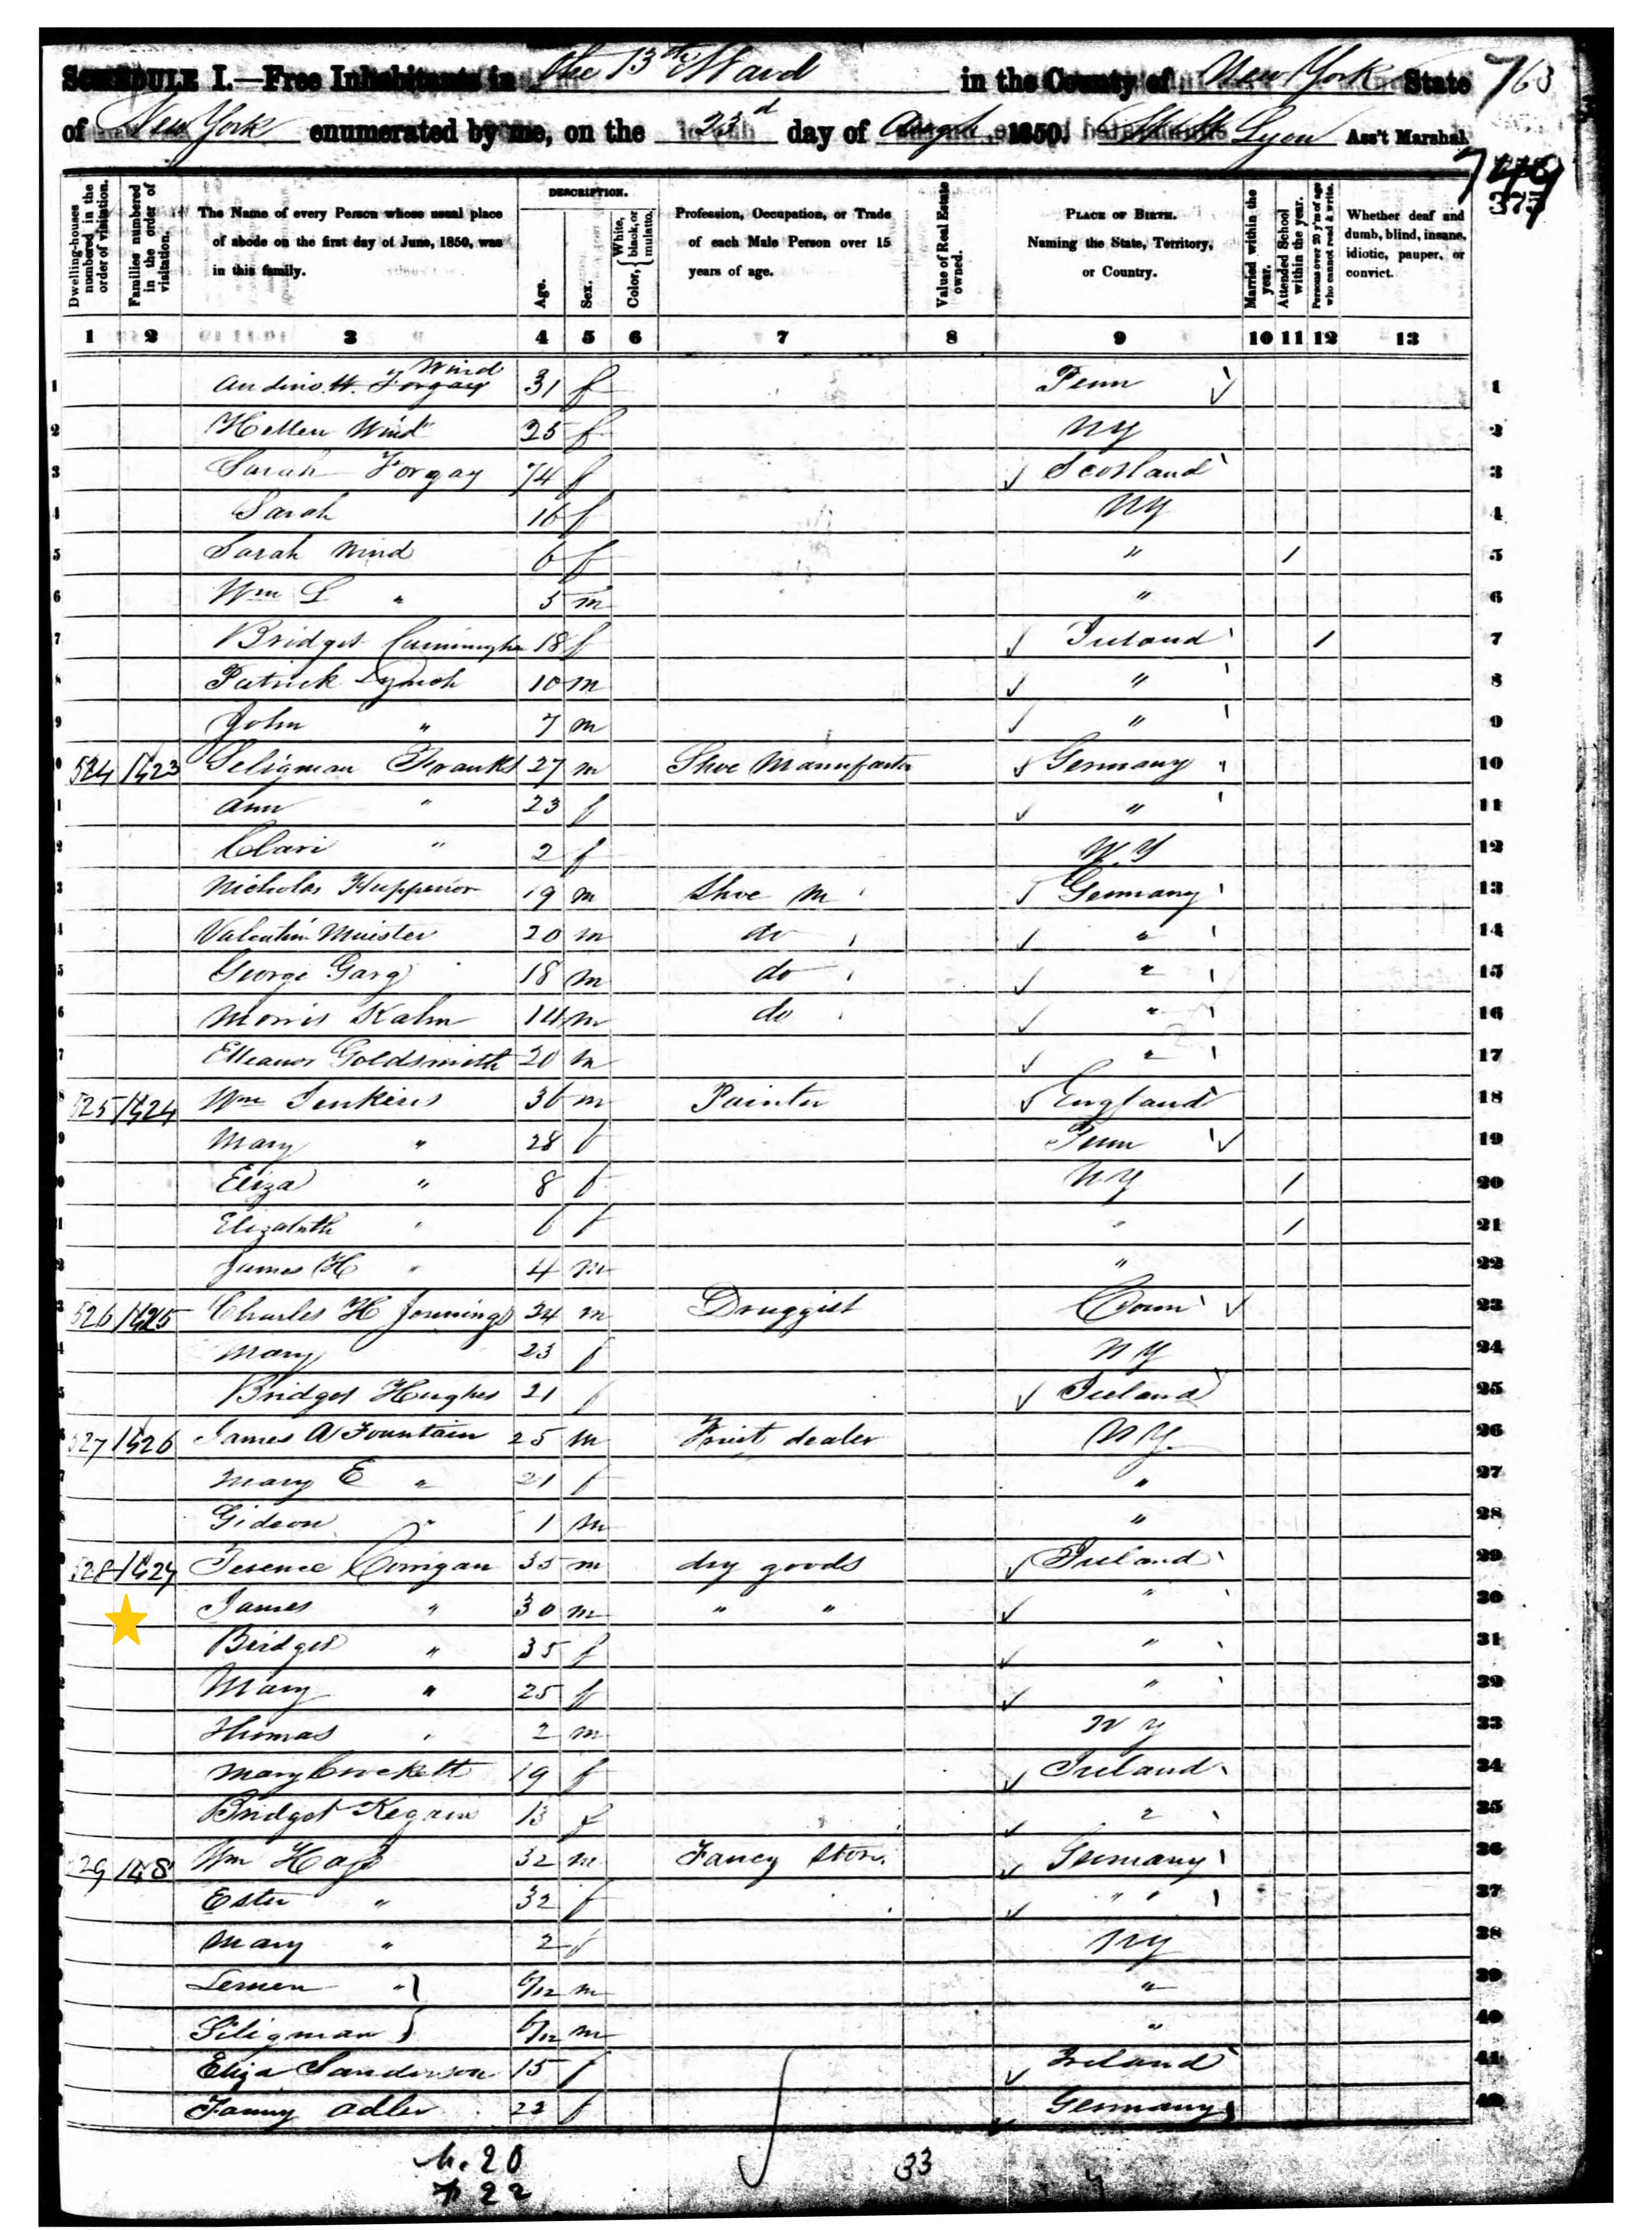 SCHEDULE I.—Free Inhabitants in the 13th Ward in the County of New York State 763
of New York enumerated by me, on the 23d day of August 1850. Lyon Ass't Marshal.
377
DESCRIPTION.
Dwelling-houses numbered in the order of visitation.
Families numbered in the order of visitation.
The Name of every Person whose usual place of abode on the first day of June, 1850, was in this family.
Age.
Sex.
Color, White, black, or mulatto.
Profession, Occupation, or Trade of each Male Person over 15 years of age.
Value of Real Estate owned.
PLACE OF BIRTH. Naming the State, Territory, or Country.
Married within the year.
Attended School within the year.
Persons over 20 y'rs of age who cannot read & write.
Whether deaf and dumb, blind, insane, idiotic, pauper, or convict.
1 2 3 4 5 6 7 8 9 10 11 12 13
1 Wind 31 f Penn 1
2 Hellen Wind 25 f NY 2
3 Sarah Forgay 74 f Scotland 3
4 Sarah 16 f NY 4
5 Sarah Wind 6 f " / 5
6 Wm L " 5 m " 6
7 Bridget 18 f Ireland / 7
8 Patrick Lynch 10 m " 8
9 John " 7 m " 9
524 1423 Seligman Franks 27 m Shoe Manufactr Germany 10
Ann " 23 f " 11
Clari " 2 f N.Y 12
Nicholas 19 m Shoe M Germany 13
Valentin Meister 20 m do " 14
George Garg 18 m do " 15
Morris Kahn 14 m do " 16
Elleanor Goldsmith 20 m " 17
525 1424 Wm Jenkins 36 m Painter England 18
Mary " 28 f Penn 19
Eliza " 8 f NY / 20
Elizabeth " 6 f " / 21
James H " 4 m " 22
526 1425 Charles H Jennings 34 m Druggist Conn 23
Mary 23 f NY 24
Bridget Hughes 21 f Ireland 25
527 1426 James A Fountain 25 m Fruit dealer NY. 26
Mary E " 21 f " 27
Gideon " 1 m " 28
528 1427 Terence Corrigan 35 m dry goods Ireland 29
James " 30 m " " " 30
Bridget " 35 f " 31
Mary " 25 f " 32
Thomas " 2 m NY 33
Mary Crockett 19 f Ireland 34
Bridget 13 f " 35
29 Wm Hays 32 m Fancy Store Germany 36
Ester " 32 f " " 37
Mary " 2 f NY 38
" 6/12 m " 39
Siligman 6/12 m " 40
Eliza Sanderson 15 f Ireland 41
Fanny Adler 22 f Germany 42
M. 20
F 22
33